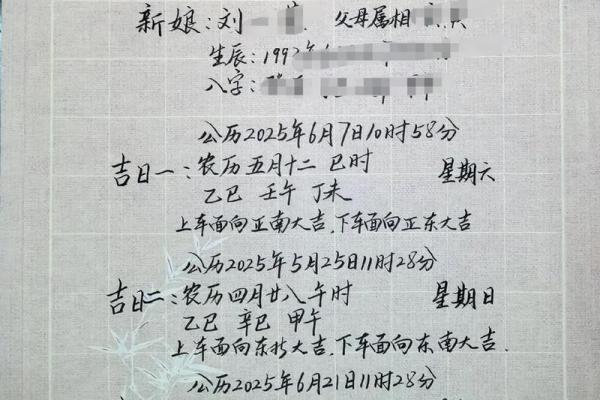 新娘:刘一 父母属相
生辰:199 年
八字:
公历2025年6月7日10时58分
吉日一:农历五月十二 巳时 星期六
乙巳 壬午 丁未
上车面向正南大吉.下车面向正东大吉
公历2025年5月25日11时28分
吉日二:农历四月廿八午时 星期日
乙巳 辛巳 甲午
上车面向东北大吉.下车面向东南大吉.
公历2025年6月21日11时28分